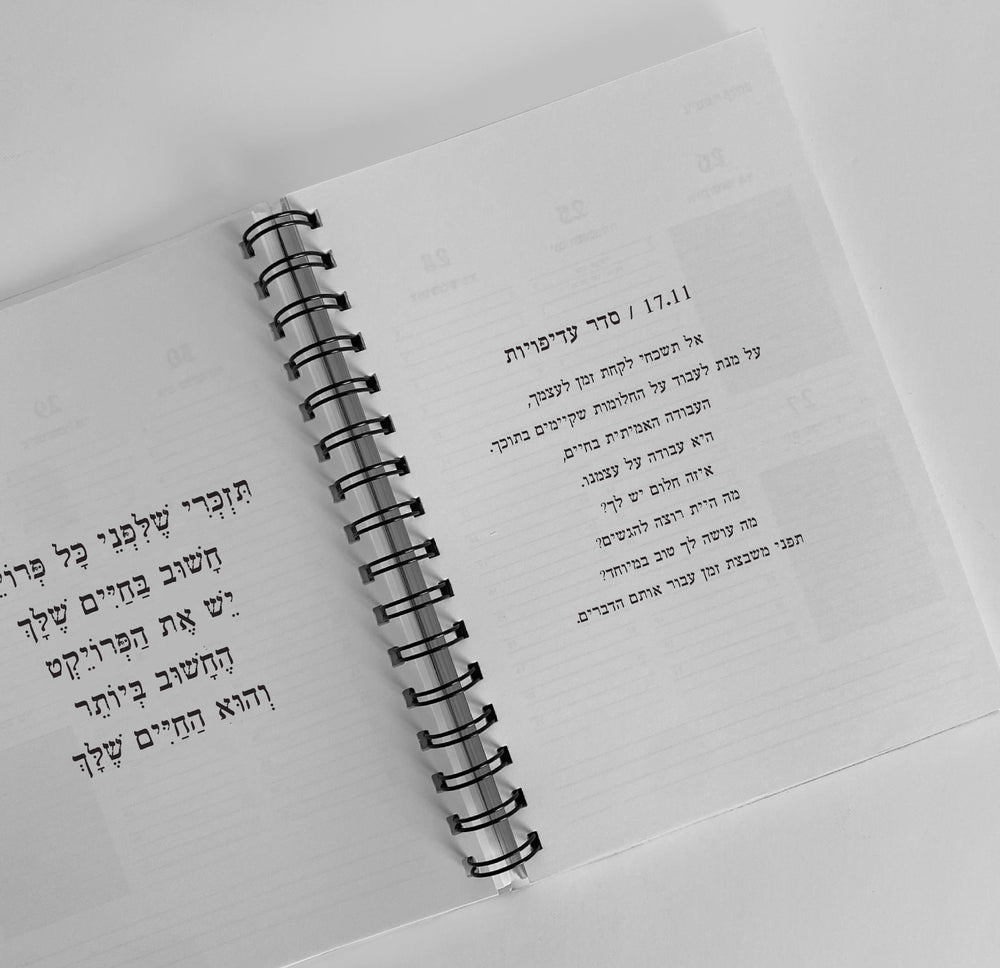 17.11 / סדר עדיפויות
אל תשכחי לקחת זמן לעצמך,
על מנת לעבוד על החלומות שקיימים בתוכך.
העבודה האמיתית בחיים,
היא עבודה על עצמנו.
איזה חלום יש לך?
מה היית רוצה להגשים?
מה עושה לך טוב במיוחד?
תפני משבצת זמן עבור אותם הדברים.
תִּזְכְּרִי שֶׁלִּפְנֵי כָּל
חָשׁוּב בַּחַיִּים שֶׁלָּךְ
יֵשׁ אֶת הַפְּרוֹיֵקְט
הֶחָשׁוּב בְּיוֹתֵר
וְהוּא הַחַיִּים שֶׁלָּךְ